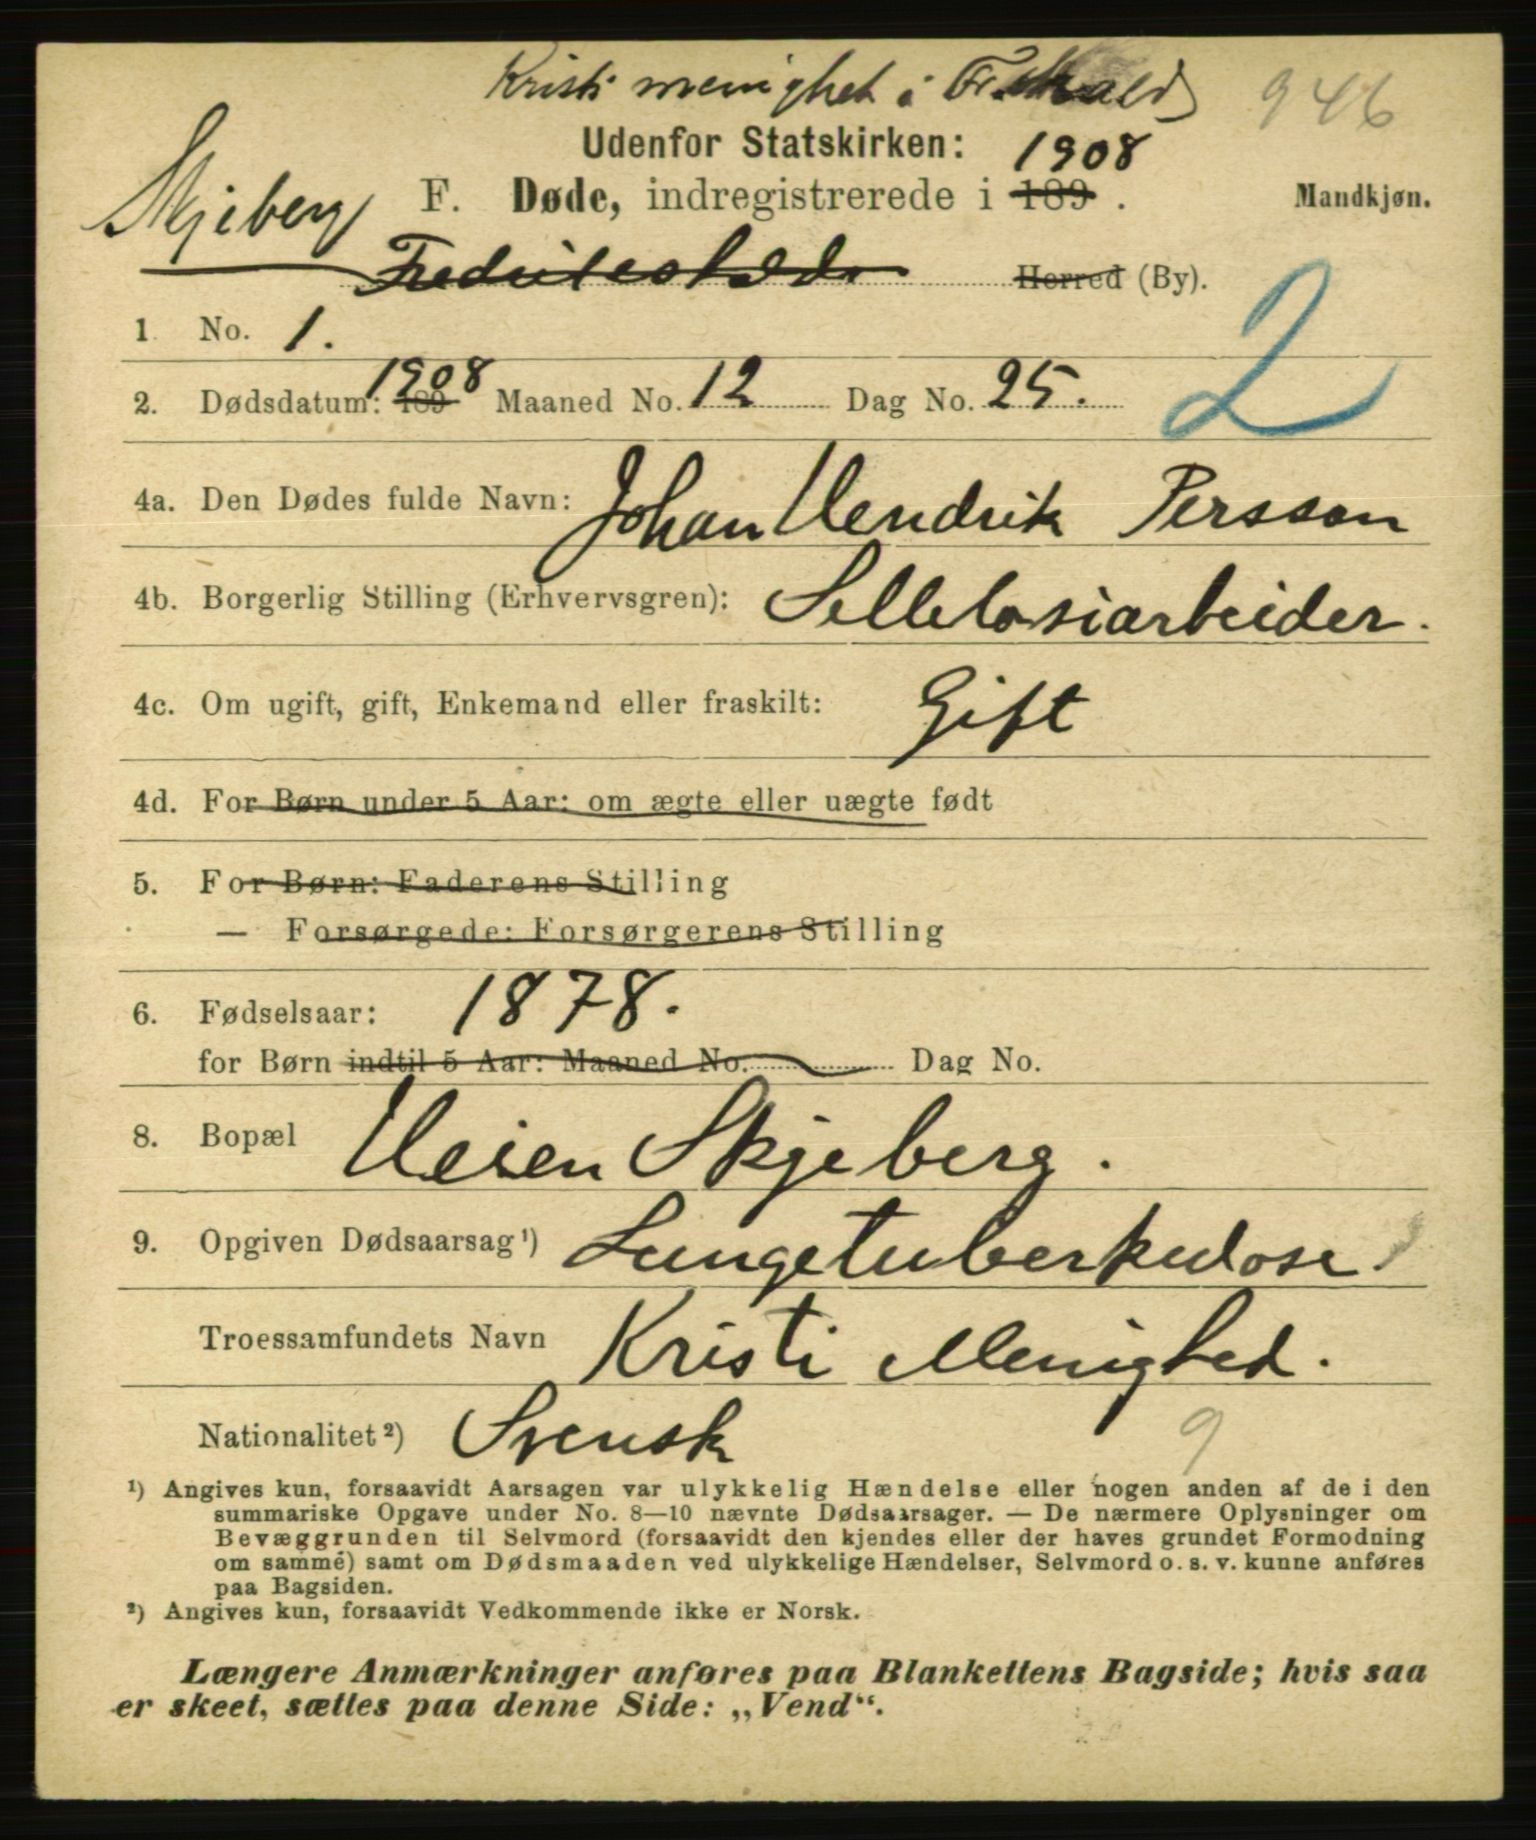 Kristi menighet i Fr.hald 946
Udenfor Statskirken: 1908
Skjeberg F. Døde, indregistrerede i 189 . Mandkjøn.
Fredrikshald Herred (By).
1. No. 1. 2
2. Dødsdatum: 189 1908 Maaned No. 12 Dag No. 25.
4a. Den Dødes fulde Navn: Johan Hendrik Persson
4b. Borgerlig Stilling (Erhvervsgren): Sellelosiarbeider.
4c. Om ugift, gift, Enkemand eller fraskilt: Gift
4d. For Børn under 5 Aar: om ægte eller uægte født
5. For Børn: Faderens Stilling
— Forsørgede: Forsørgerens Stilling
6. Fødselsaar: 1878.
for Børn indtil 5 Aar: Maaned No. Dag No.
8. Bopæl Heien Skjeberg.
9. Opgiven Dødsaarsag ¹) Lungetuberkulose.
Troessamfundets Navn Kristi Menighed.
Nationalitet ²) Svensk 9
¹) Angives kun, forsaavidt Aarsagen var ulykkelig Hændelse eller nogen anden af de i den
summariske Opgave under No. 8—10 nævnte Dødsaarsager. — De nærmere Oplysninger om
Bevæggrunden til Selvmord (forsaavidt den kjendes eller der haves grundet Formodning
om samme) samt om Dødsmaaden ved ulykkelige Hændelser, Selvmord o. s. v. kunne anføres
paa Bagsiden.
²) Angives kun, forsaavidt Vedkommende ikke er Norsk.
Længere Anmærkninger anføres paa Blankettens Bagside; hvis saa
er skeet, sættes paa denne Side: „Vend“.